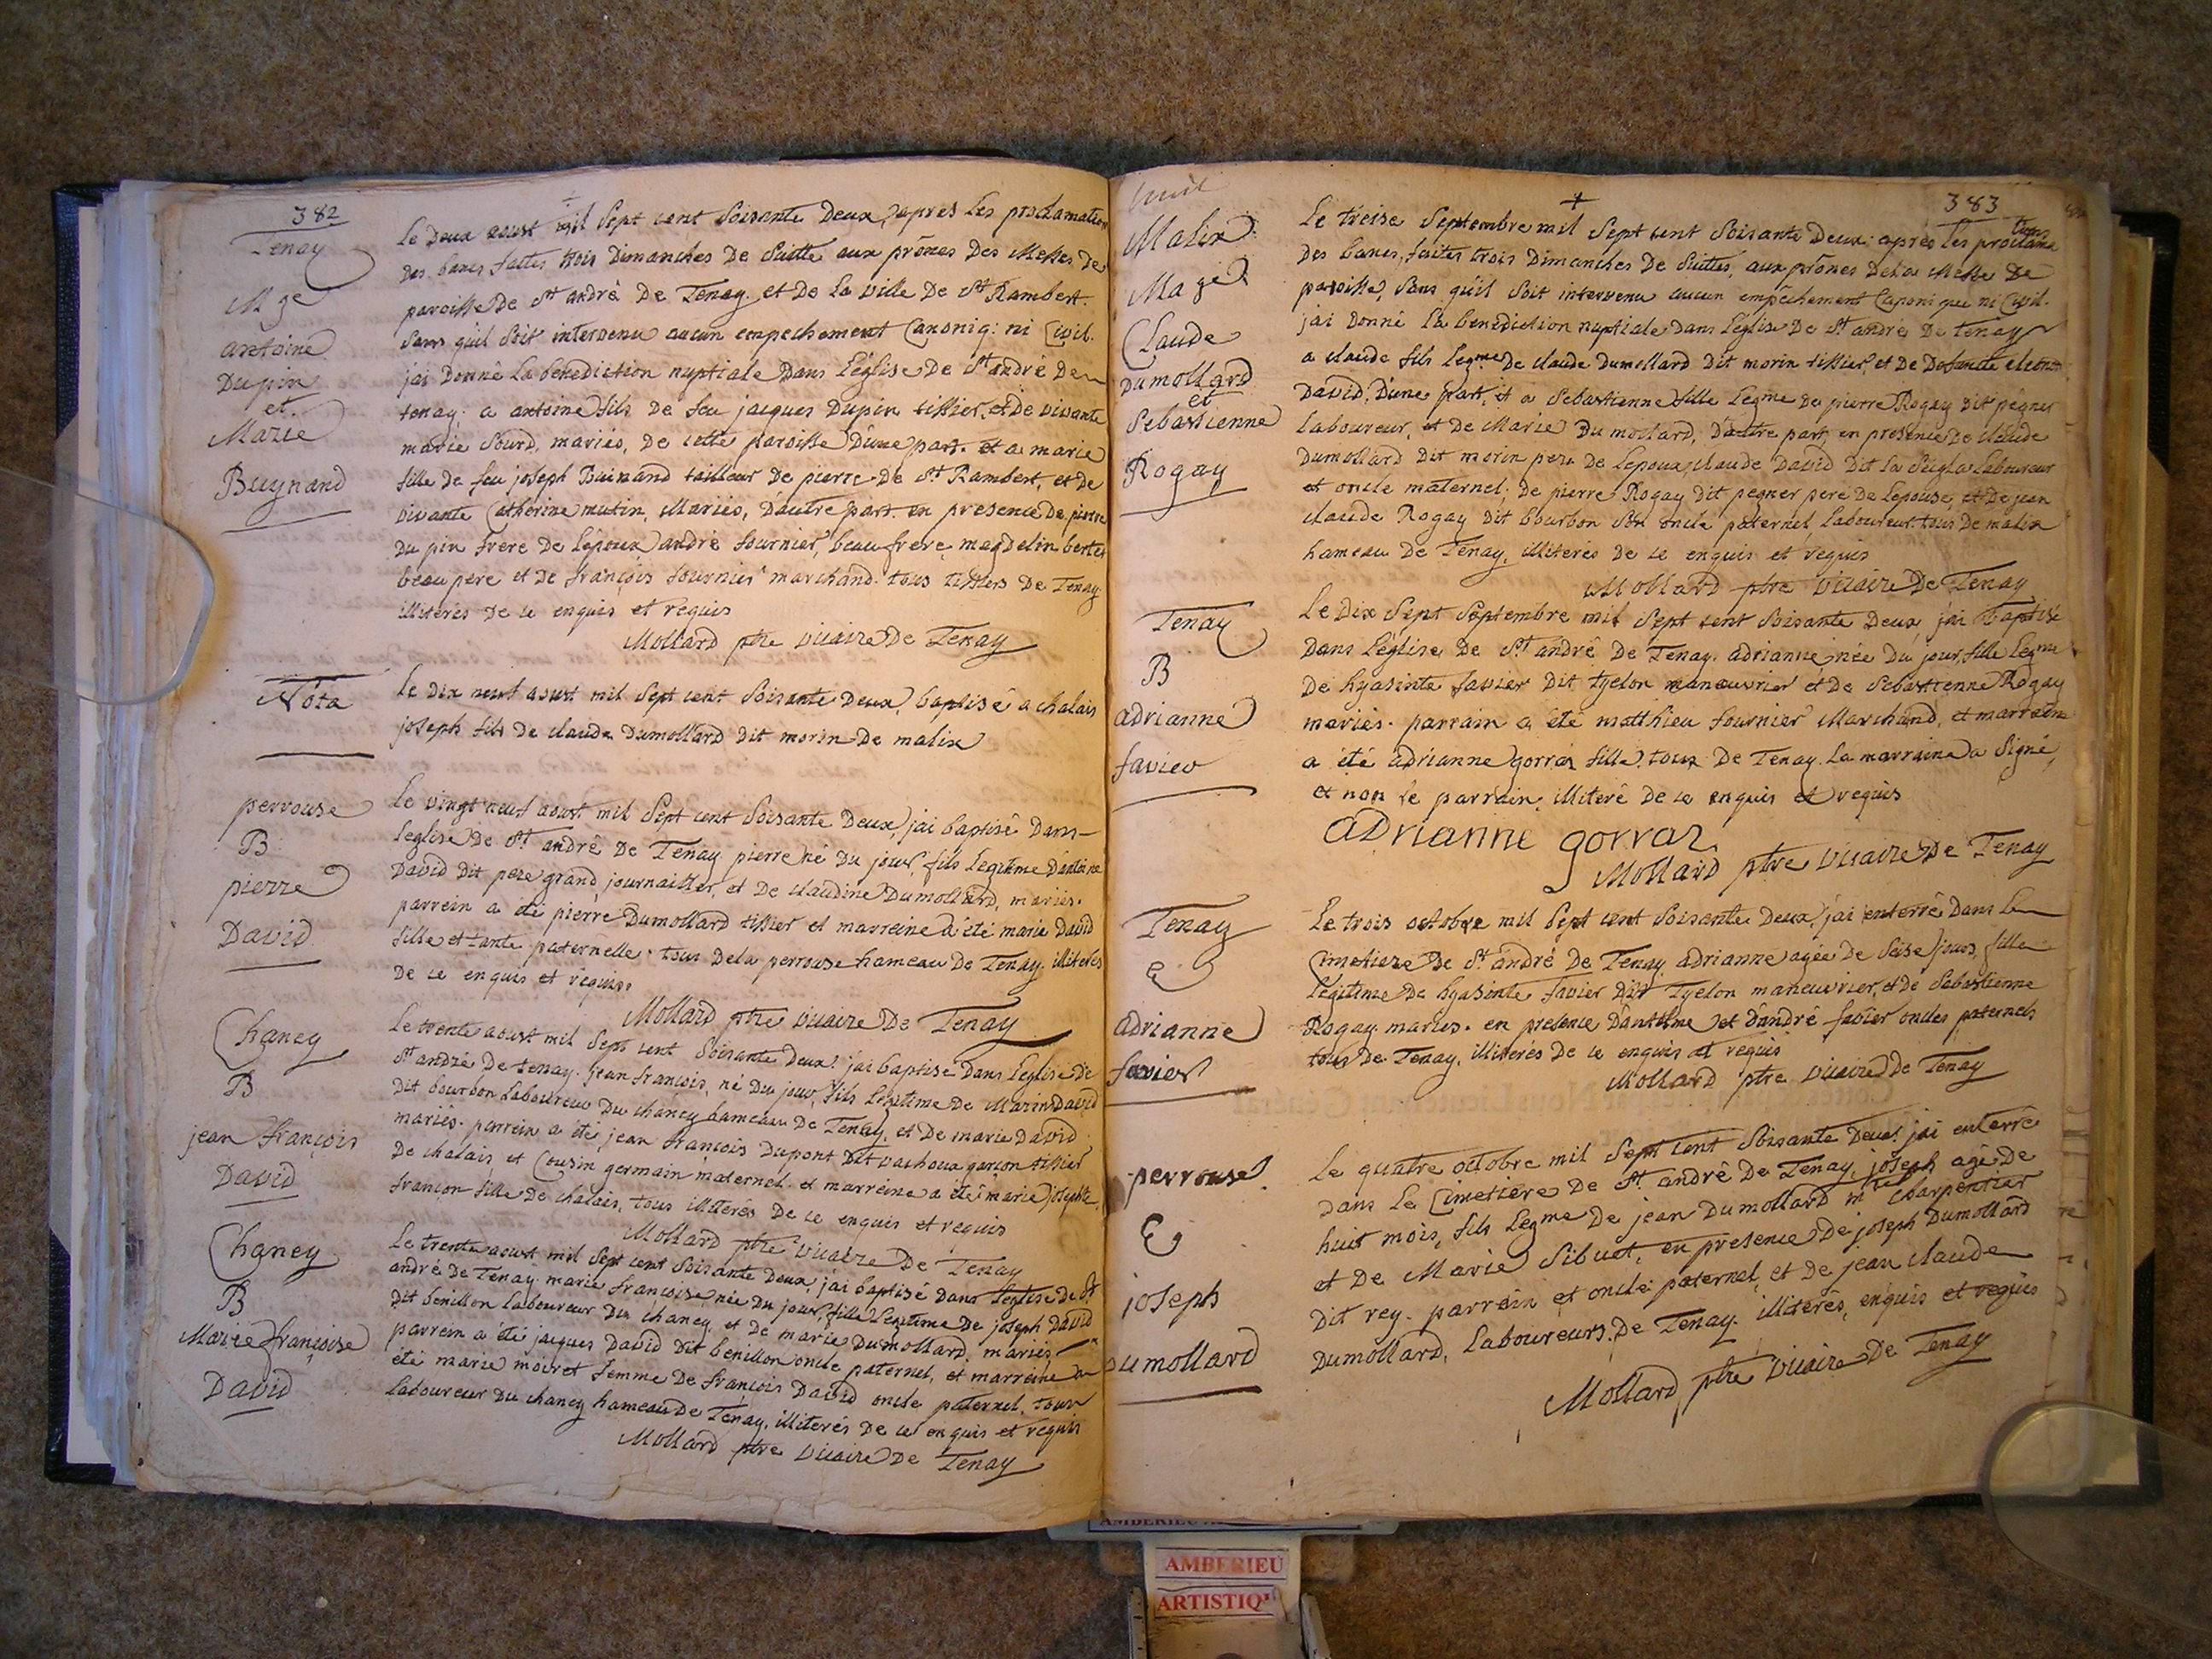 382
Tenay
Mge
antoine
Dupin
et
Marie
Buynand
Le Deux aoust mil Sept cent Soisante Deux, apres Les proclamations
Des bancs faites trois Dimanches De Suitte aux prônes Des Messes de
paroisse De St andrê De Tenay. et De La ville De St Rambert.
Sans qu'il Soit intervenu aucun empechement Canoniq: ni Civil.
jai Donné La benediction nuptiale Dans L'église De St andrê De
tenay. a antoine fils De feu jacques Dupin tissier, et De vivante
marie Sourd, mariés, De cette paroisse D'une part. et a marie
fille De feu joseph Buinand tailleur De pierre De St Rambert, et De
vivante Catherine mutin, Mariés, D'autre part. en presence De pierre
Du pin frere De Lepoux, andré fournier, beau frere, magdelin bertet
beau pere et De françois fournier marchand. tous tissiers De Tenay
illiterés De ce enquis et requis
Mollard ptre vicaire De Tenay
Nota
Le Dix neuf aoust mil Sept cent Soisante Deux, baptisé a chalais
joseph fils De claude Dumollard Dit morin De malix
perrouse
B
pierre
David
Le vingt neuf aoust mil Sept cent Soisante Deux, jai baptisé Dans
l'eglise De St andrê De Tenay pierre né Du jour, fils Legitime D'antoine
David Dit pere grand, journaillier, et De claudine Dumollard, mariés.
parrein a été pierre Dumollard tissier et marreine a été marie David
fille et tante paternelle. tous De La perrouse hameau De Tenay. illiterés
De ce enquis et requis.
Mollard ptre vicaire De Tenay
Chaney
B
jean François
David
Le trente aoust mil Sept cent Soisante Deux! jai baptisé Dans L'eglise De
St andrée De tenay. jean françois, né Du jour, fils Legitime De Marin David
Dit bourbon Laboureur Du chaney hameau De Tenay, et De marie David
mariés. parrein a été jean françois Dupont Dit vachoux garçon tissier
De chalais, et Cousin germain maternel. et marreine a été marie josephte
françon fille De chalais, tous illiterés De ce enquis et requis
Mollard ptre vicaire De Tenay
Chaney
B
Marie françoise
David
Le trente aoust mil Sept cent Soisante Deux, jai baptisé Dans L'eglise De St
andré De Tenay. marie françoise née Du jour, fille Legitime De joseph David
Dit benillon Laboureur Du chaney, et De marie Dumollard. mariés
parrein a été jacques David Dit benillon oncle paternel, et marreine a
été marie moiret femme De françois David oncle paternel. tous
Laboureur Du chaney hameau De Tenay, illiterés De ce enquis et requis
Mollard ptre vicaire De Tenay
383
Malix
Mage
Claude
Dumollard
et
Sebastienne
Rogay
Le treise Septembre mil Sept cent Soisante Deux. après Les proclama
tions
Des bancs, faites trois Dimanches De Suittes, aux prônes De La Messe De
paroisse, Sans qu'il Soit intervenu aucun empêchement Canonique ni Civil.
jai Donné La benediction nuptiale Dans L'église De St andré De tenay
a claude fils Legme De claude Dumollard Dit morin tissier, et De Defuncte
David, D'une part, et a Sebastienne fille Legme De pierre Rogay Dit pegner
Laboureur, et De Marie Dumollard, D'autre part, en presence De claude
Dumollard Dit morin pere De Lepoux, claude David Dit La Laboureur
et oncle maternel. De pierre Rogay dit pegner pere De Lepouse, et De jean
claude Rogay Dit bourbon Son oncle paternel, Laboureur. tous De malix
hameau De Tenay, illiterés De ce enquis et requis
Mollard ptre vicaire De Tenay
Tenay
B
adrianne
favier
Le Dix Sept Septembre mil Sept cent Soisante Deux, jai baptisé
Dans L'église De St andrê De Tenay. adrianne née Du jour, fille Legme
De hyasinte favier Dit tyelon maneuvrier et De Sebastienne Rogay
mariés. parrain a été matthieu fournier Marchand, et marraine
a été adrianne gorraz fille. tous De Tenay. La marraine a Signé,
et non Le parrain, illiteré De ce enquis et requis
aDrianne gorraz
Mollard ptre vicaire De Tenay
Tenay
E
adrianne
favier
Le trois octobre mil Sept cent Soisante Deux, jai enterré Dans Le
Cimetiere De St andrê De Tenay, adrianne agée De Seise jours, fille
Legitime De hyasinte favier Dit Tyelon maneuvrier, et De Sebastienne
Rogay mariés. en presence D'anthelme et D'andré favier oncles paternels
tous De Tenay, illiterés De ce enquis et requis
Mollard ptre vicaire De Tenay
perrouse
E
joseph
Dumollard
Le quatre octobre mil Sept cent Soisante Deux! jai enterré
Dans Le Cimetiere De St andrê De Tenay, joseph agé De
huit mois, fils Legme De jean Dumollard mtre Charpentier
et De Marie Sibuet, en presence De joseph Dumollard
Dit rey. parrein et oncle paternel, et De jean claude
Dumollard, Laboureurs, De Tenay. illiterés, enquis et requis
Mollard ptre vicaire De Tenay
AMBERIEU
AMBERIEU
ARTISTIQ